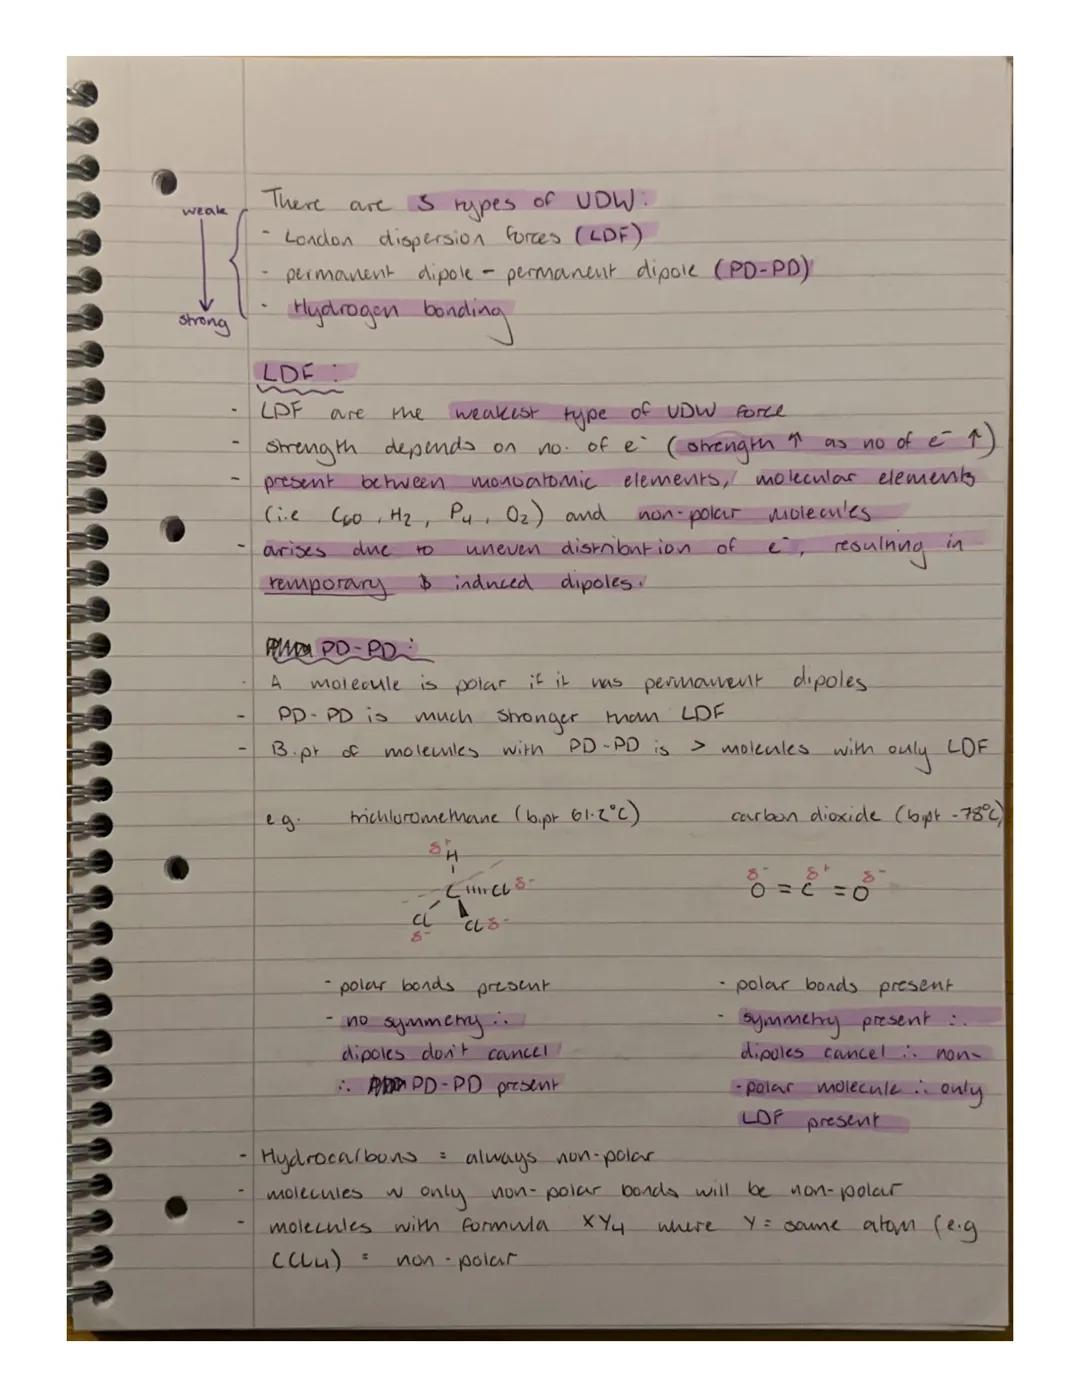 There are 3 types of VDW:
weak
- London dispersion forces (LDF)
- permanent dipole - permanent dipole (PD-PD)
- Hydrogen bonding
strong
LDF :
- LDF are the weakest type of VDW force
- strength depends on no. of e⁻ (strength ↑ as no of e⁻ ↑)
- present between monoatomic elements, molecular elements
(i.e C60, H2, P4, O2) and non-polar molecules
- arises due to uneven distribution of e⁻, resulting in
temporary & induced dipoles.
PD-PD:
- A molecule is polar if it has permanent dipoles
- PD-PD is much stronger than LDF
- B.pt of molecules with PD-PD is > molecules with only LDF
e.g. trichloromethane (b.pt 61.2°C) carbon dioxide (b.pt -78°C)
δ+
H
C Cl δ-
Cl Cl δ-
δ-
δ- δ+ δ-
O = C = O
- polar bonds present
- no symmetry ∴
dipoles don't cancel
∴ PD-PD present
- polar bonds present
- symmetry present ∴
dipoles cancel ∴ non-
-polar molecule ∴ only
LDF present
- Hydrocarbons = always non-polar
- molecules w only non-polar bonds will be non-polar
- molecules with formula XY4 where Y = same atom (e.g
CCl4) = non-polar